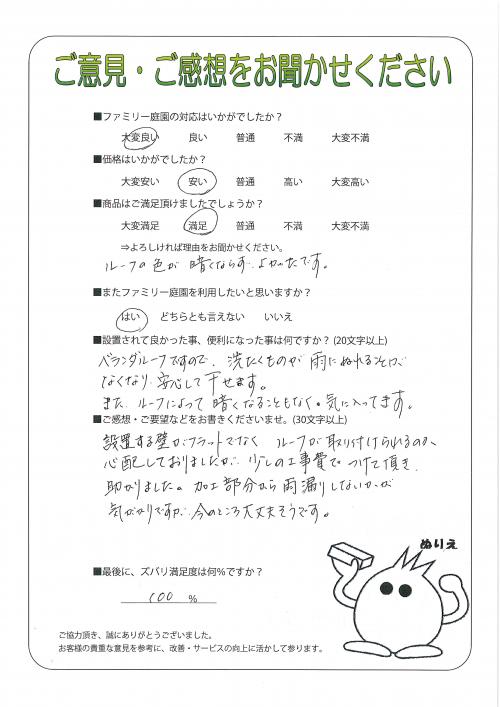 ご意見・ご感想をお聞かせください
■ファミリー庭園の対応はいかがでしたか？
大変良い 良い 普通 不満 大変不満
■価格はいかがでしたか？
大変安い 安い 普通 高い 大変高い
■商品はご満足頂けましたでしょうか？
大変満足 満足 普通 不満 大変不満
⇒よろしければ理由をお聞かせください。
ルーフの色が暗くならず、よかったです。
■またファミリー庭園を利用したいと思いますか？
はい どちらとも言えない いいえ
■設置されて良かった事、便利になった事は何ですか？(20文字以上)
ベランダルーフですので、洗たくものが雨にぬれる
なくなり、安心して干せます。
また、ルーフによって暗くなることもなく。気に入ってます。
■ご感想・ご要望などをお書きくださいませ。(30文字以上)
設置する壁がフラットでなく、ルーフが取り付けられるのか、
心配しておりましたが、少しの工事費でつけて頂き、
助かりました。加工部分から雨漏りしないかが
気がかりですが、今のところ大丈夫そうです。
ぬりえ
■最後に、ズバリ満足度は何％ですか？
100 %
ご協力頂き、誠にありがとうございました。
お客様の貴重な意見を参考に、改善・サービスの向上に活かして参ります。